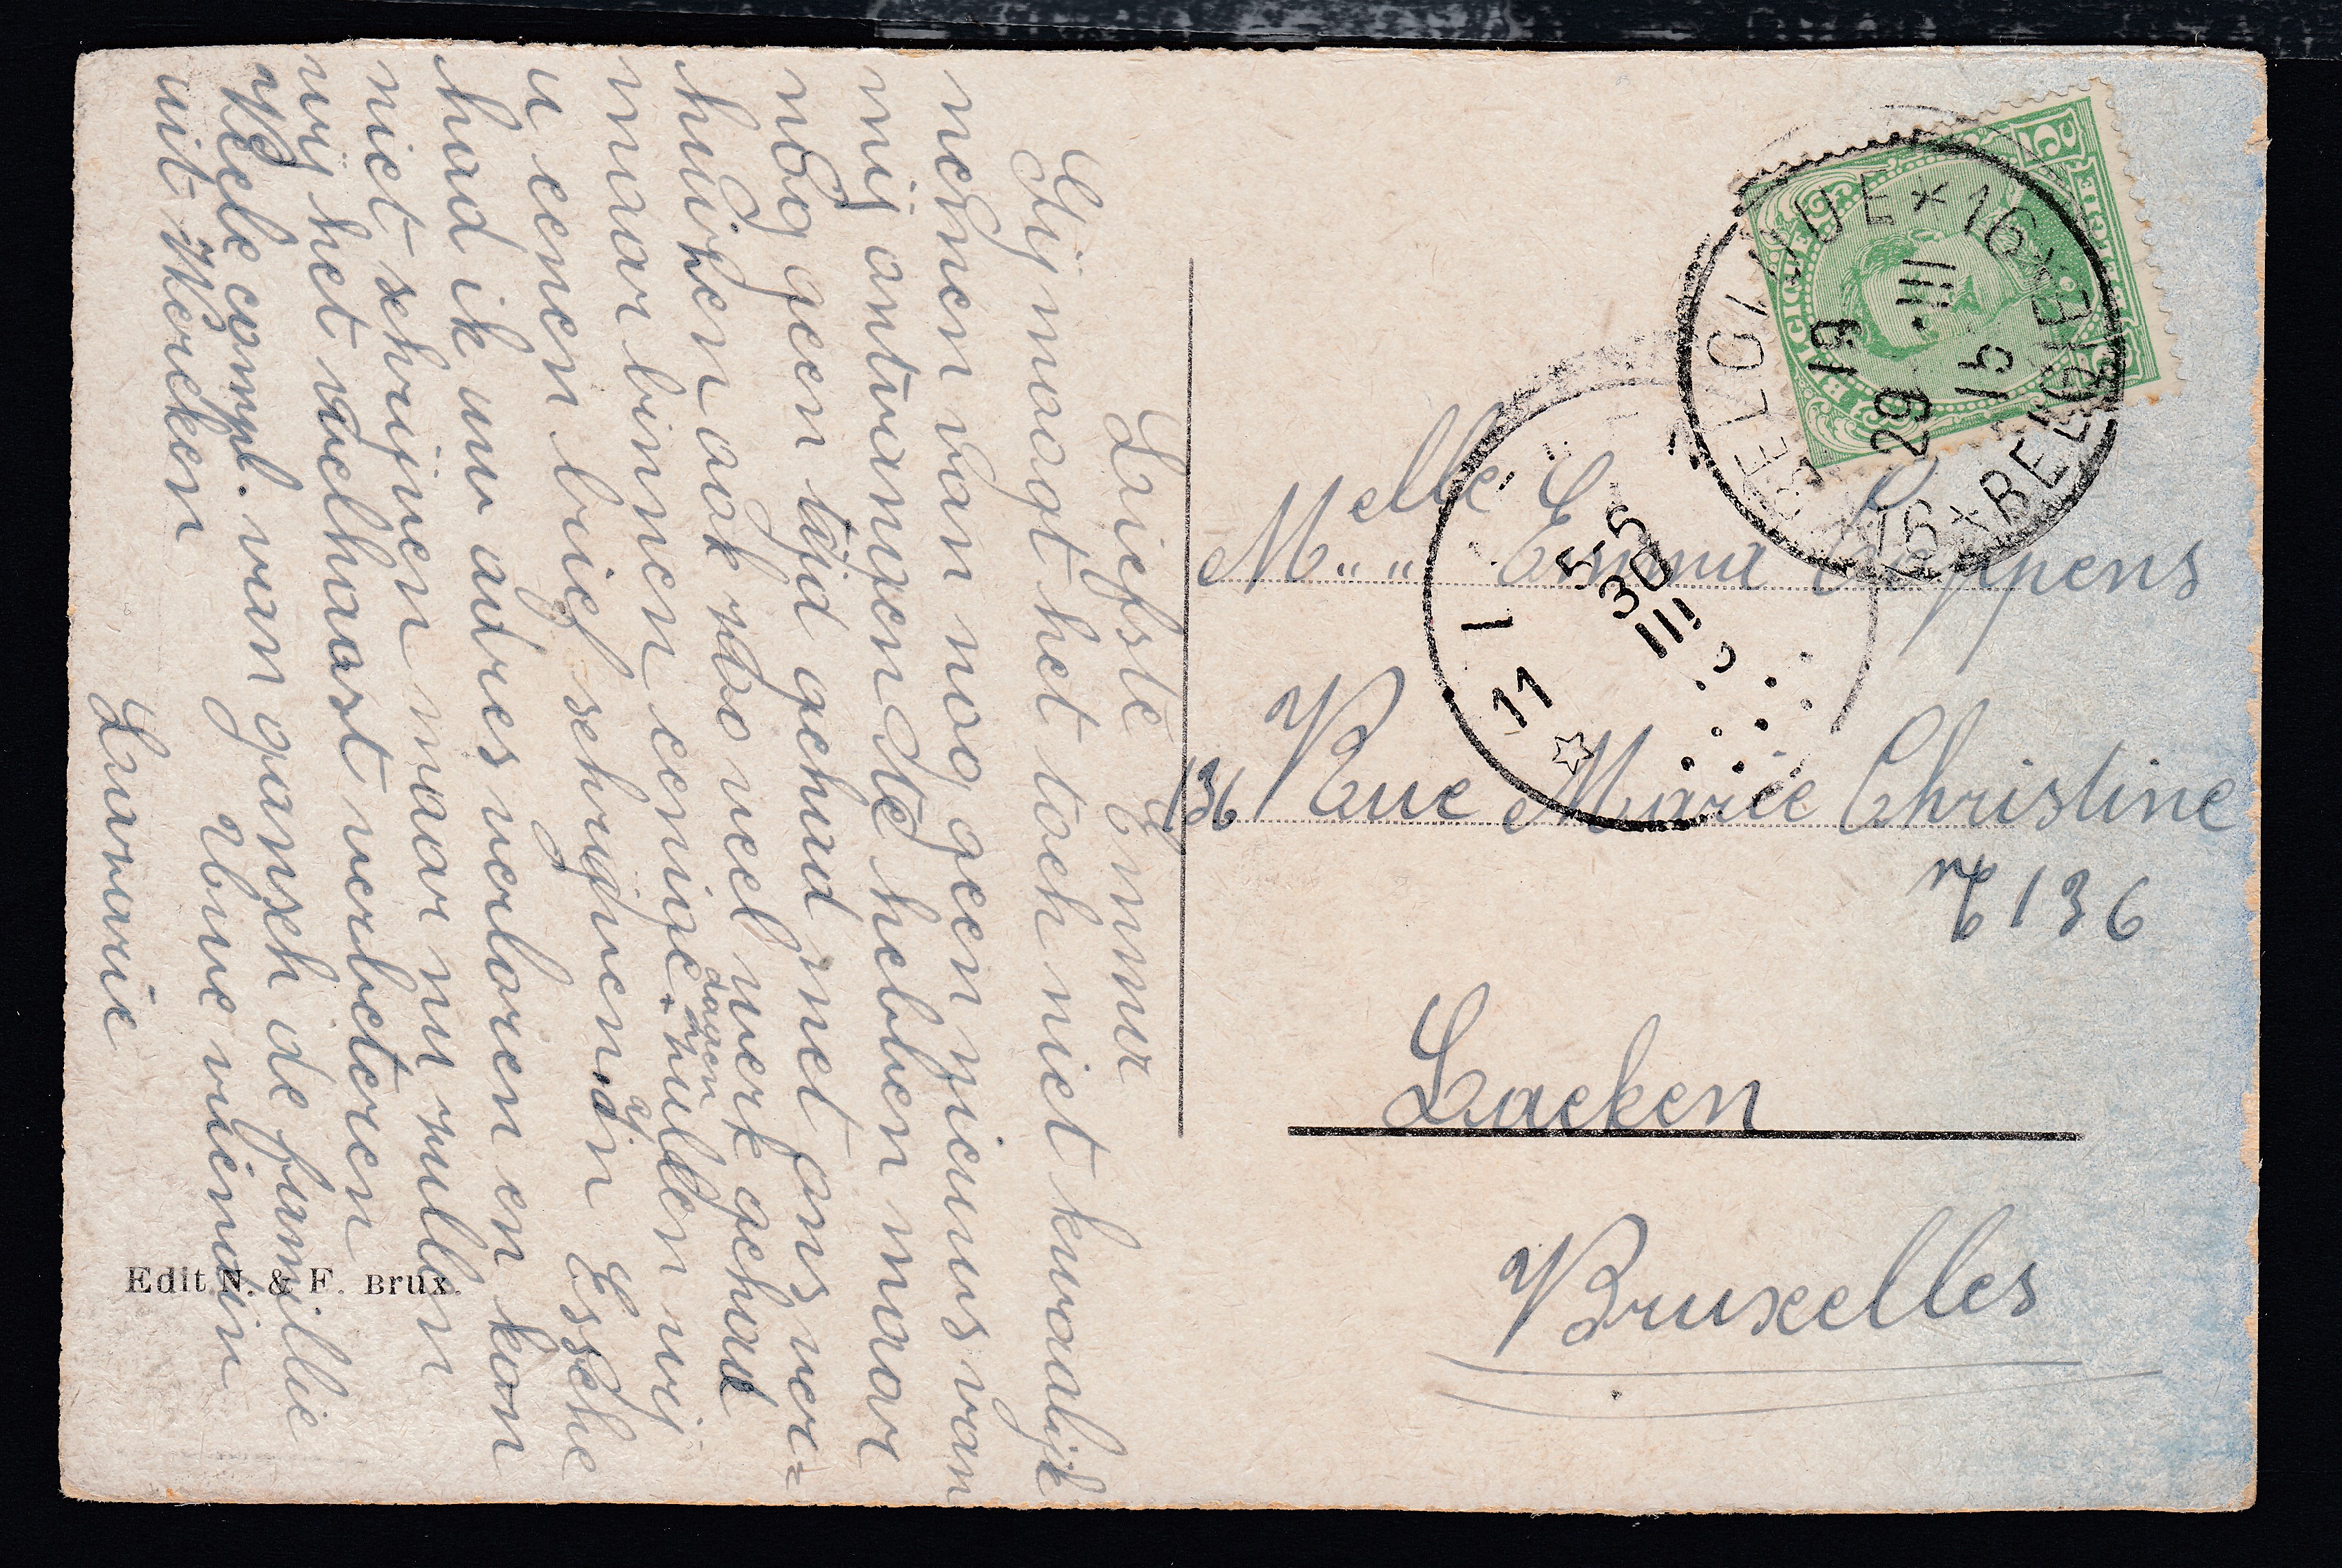 Liefste Emma
Gij moogt het toch niet kwaalijk
nemen van nog geen nieuws van
mij ontvangen te hebben maar
nog geen tijd gehad met ons ver=
huizen ook zoo veel werk gehad
maar binnen eenige dagen zullen wij
u eenen brief schrijven in Essche
had ik uw adres verloren en kon
niet schrijven maar nu zullen
wij het veelhaast verbeteren
Veele compl. van gansch de familie
uit Wercken Uwe vriendin
Edit. N. & F. Brux.
BELGIQUE * 16 * BELGIE * 16 *
19
29 III
15
BELGIQUE BELGIE
5
5-6
30
III
11
Melle Emma Coppens
136 Rue Marie Christine
N° 136
Laeken
Bruxelles